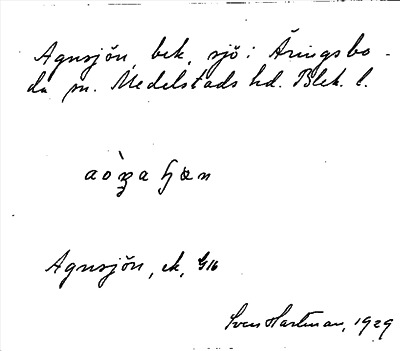 Agnsjön, bek. sjö i Äringsbo-
da sn. Medelstads hd. Blek. l.
Agnsjön, ek,
Sven Hartman, 1929